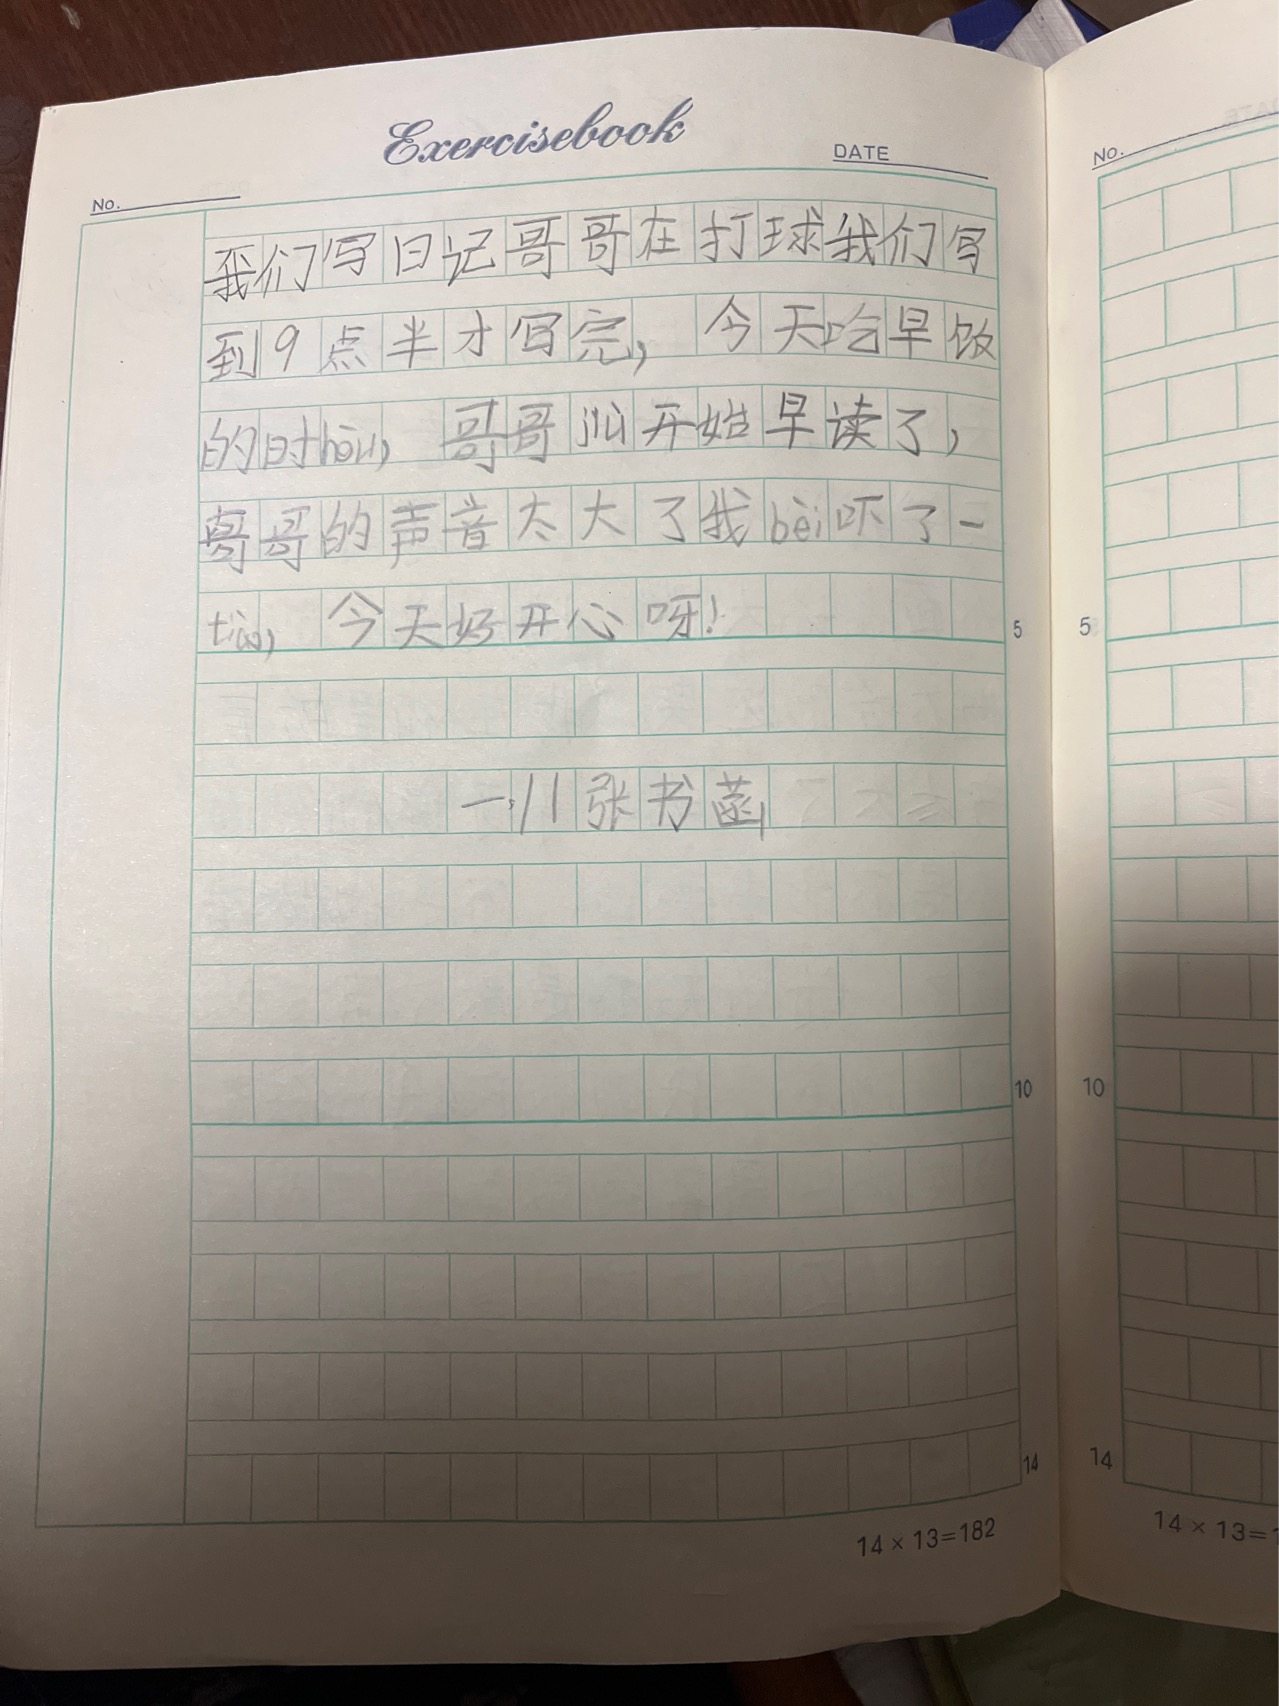 Exercisebook
No.
DATE
我们写日记哥哥在打球我们写
到9点半才写完，今天吃早饭
的时hòu，哥哥jiù开始早读了，
哥哥的声音太大了我bèi吓了一
tiào，今天好开心呀！
5
一.11张书菡
10
14
14×13=182
No.
5
10
14
14×13=